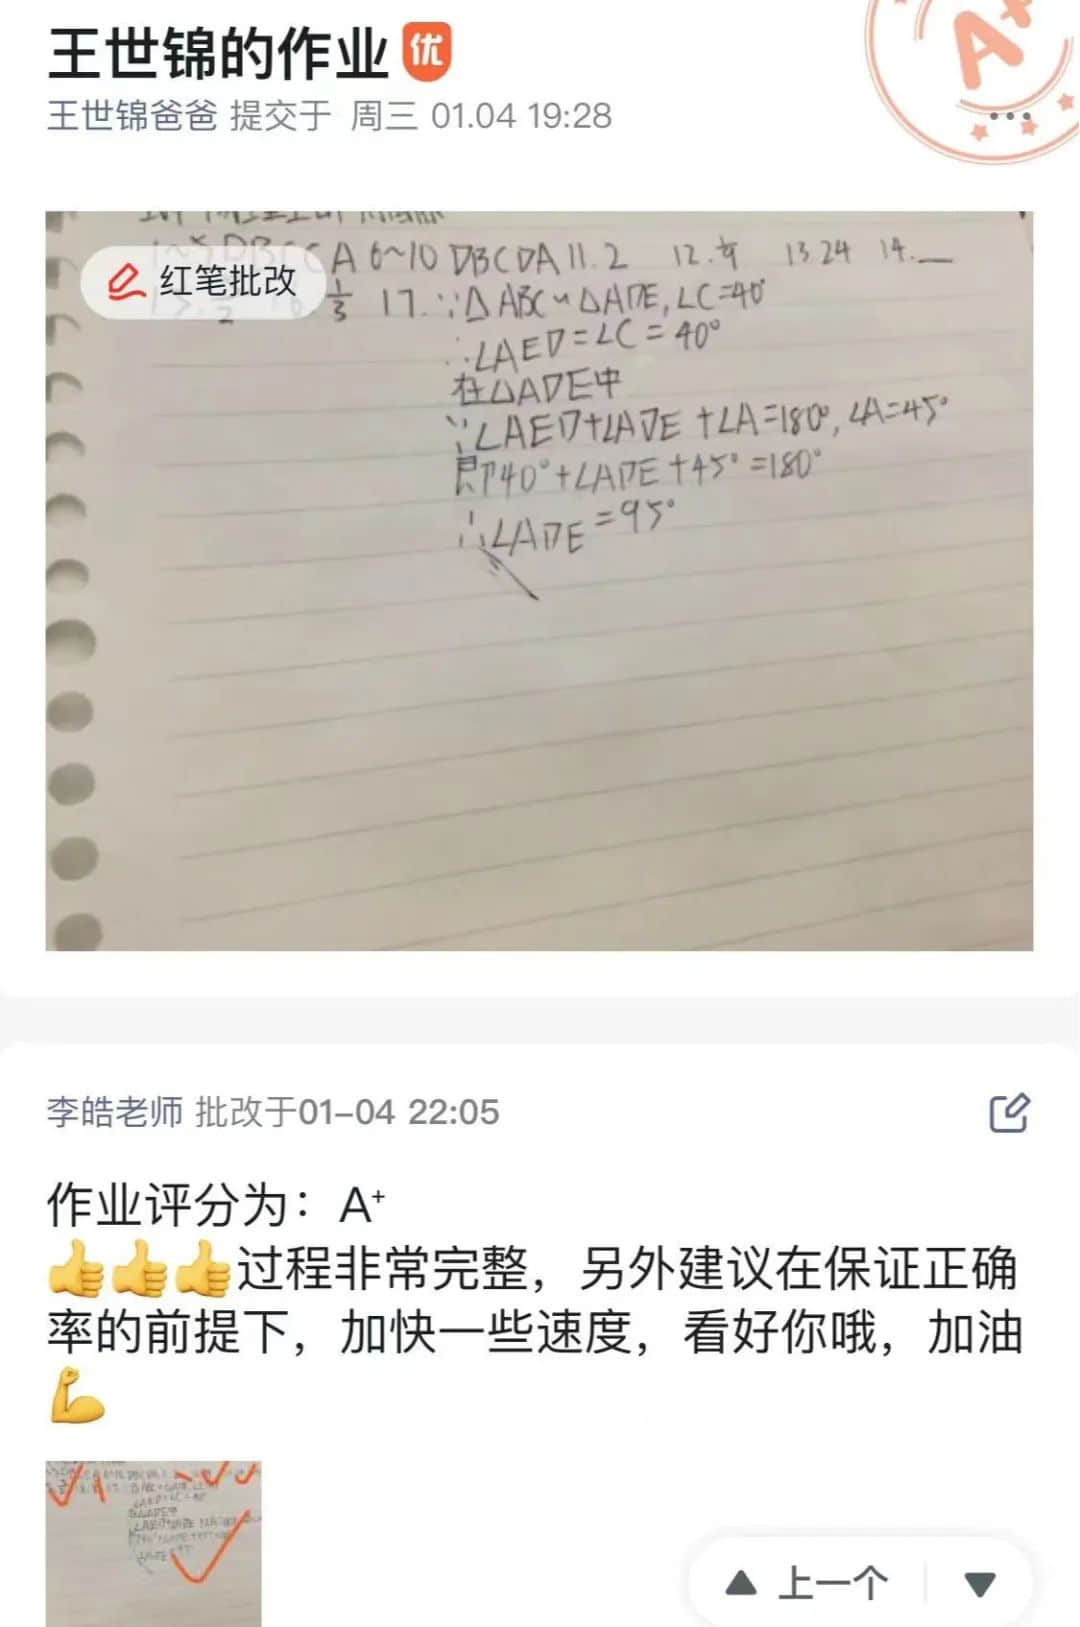 王世锦的作业 优
A+
王世锦爸爸 提交于 周三 01.04 19:28
红笔批改
A 6~10 DBCDA 11. 2 12. 13. 24 14. __
1/3 17. ∵△ABC∽△ADE, ∠C=40°
∴∠AED=∠C=40°
在△ADE中
∵∠AED+∠ADE+∠A=180°, ∠A=45°
即40°+∠ADE+45°=180°
∴∠ADE=95°
李皓老师 批改于01-04 22:05
作业评分为：A⁺
👍👍👍过程非常完整，另外建议在保证正确
率的前提下，加快一些速度，看好你哦，加油
💪
上一个